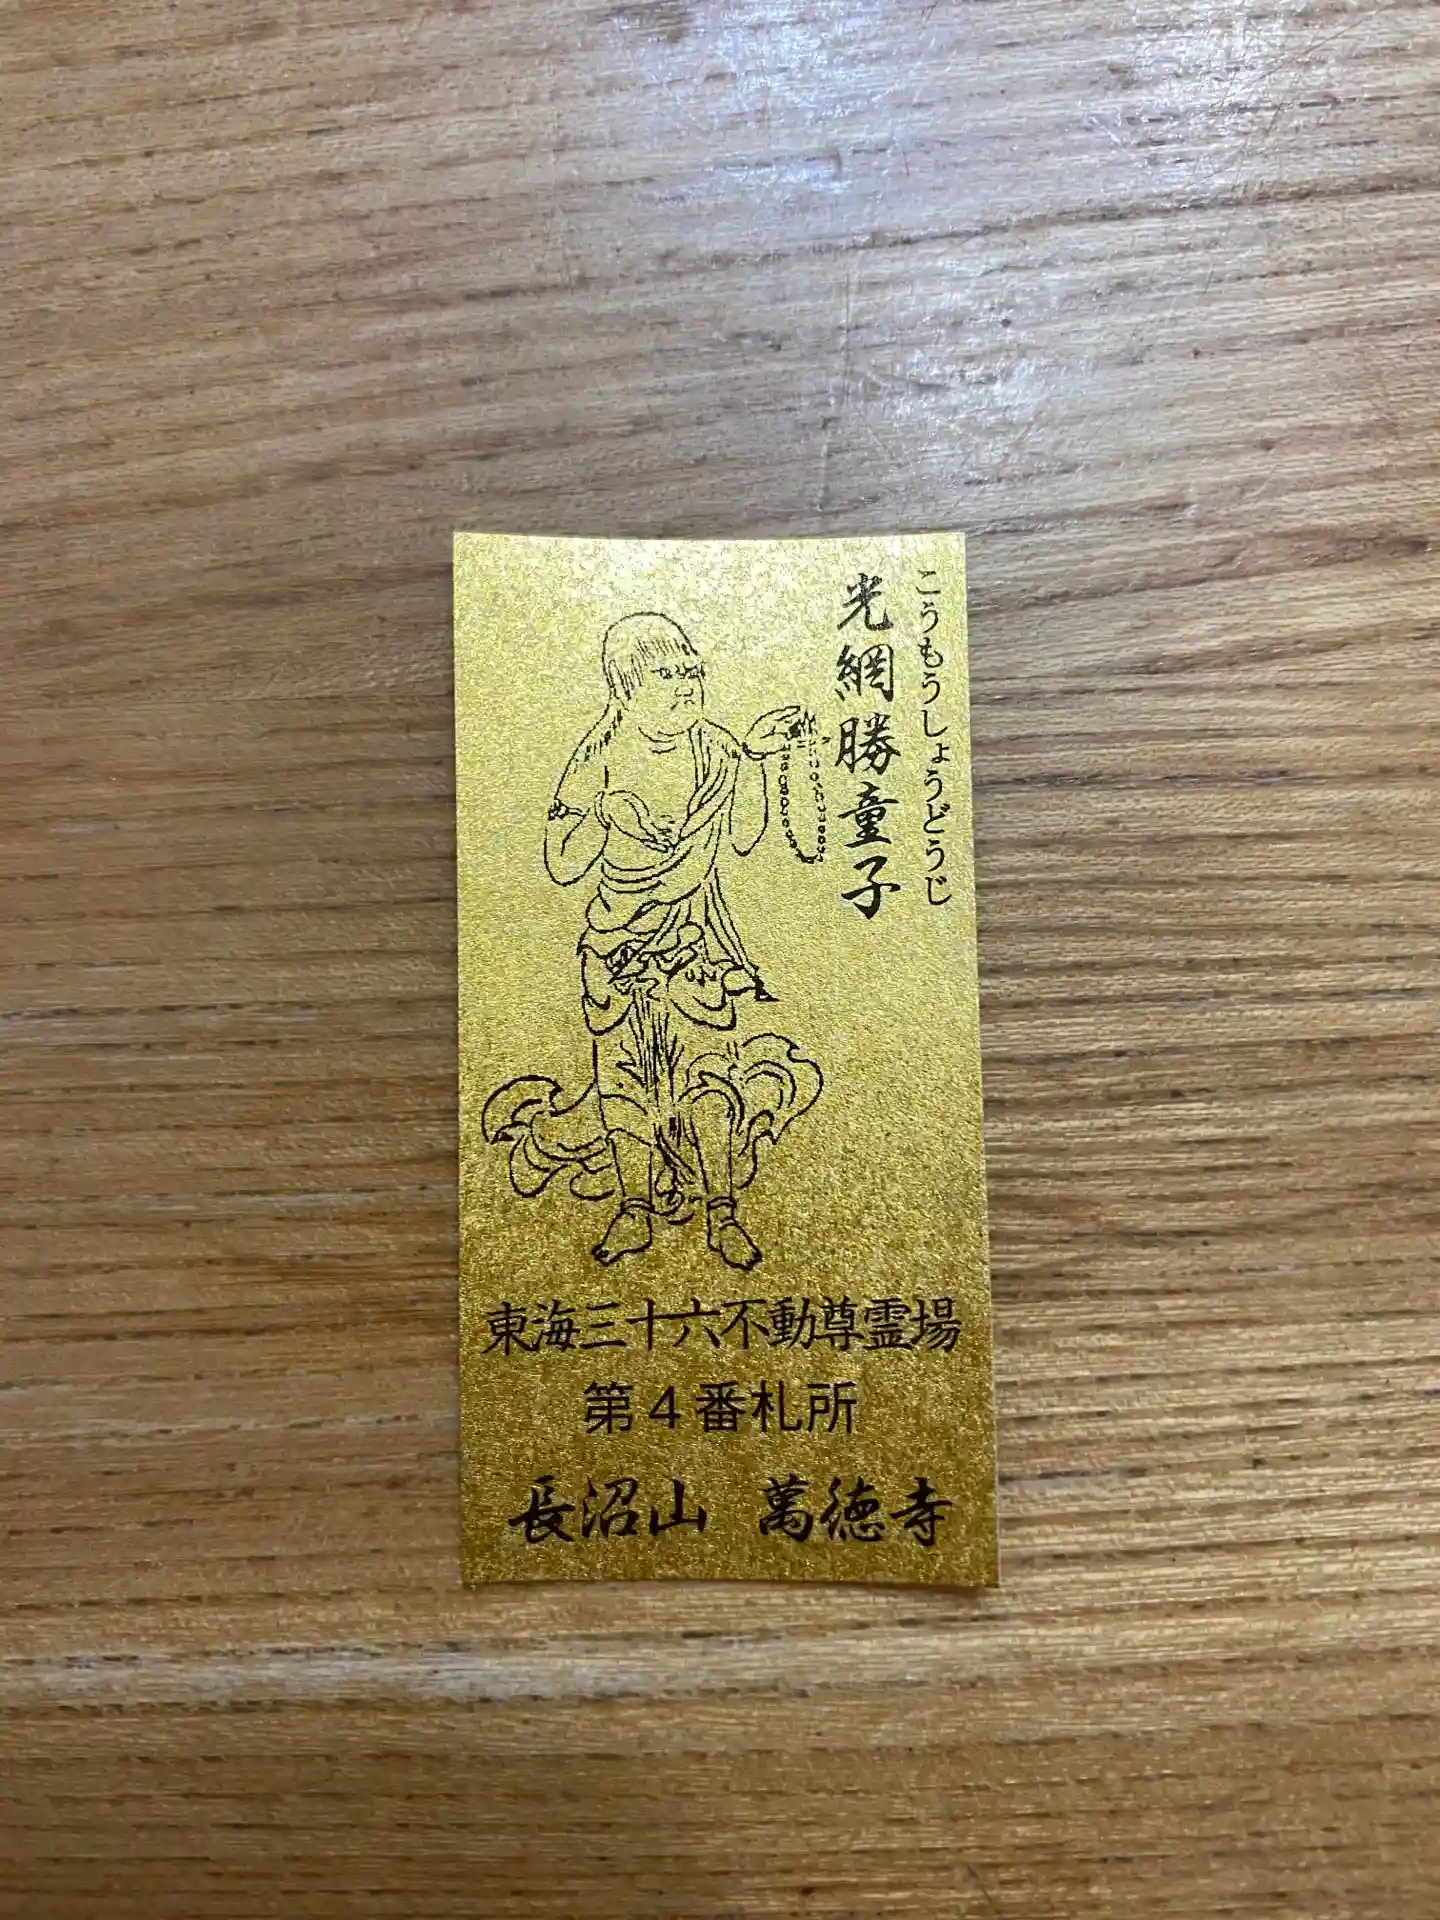 こうもうしょうどうじ
光網勝童子
東海三十六不動尊霊場
第４番札所
長沼山 萬徳寺